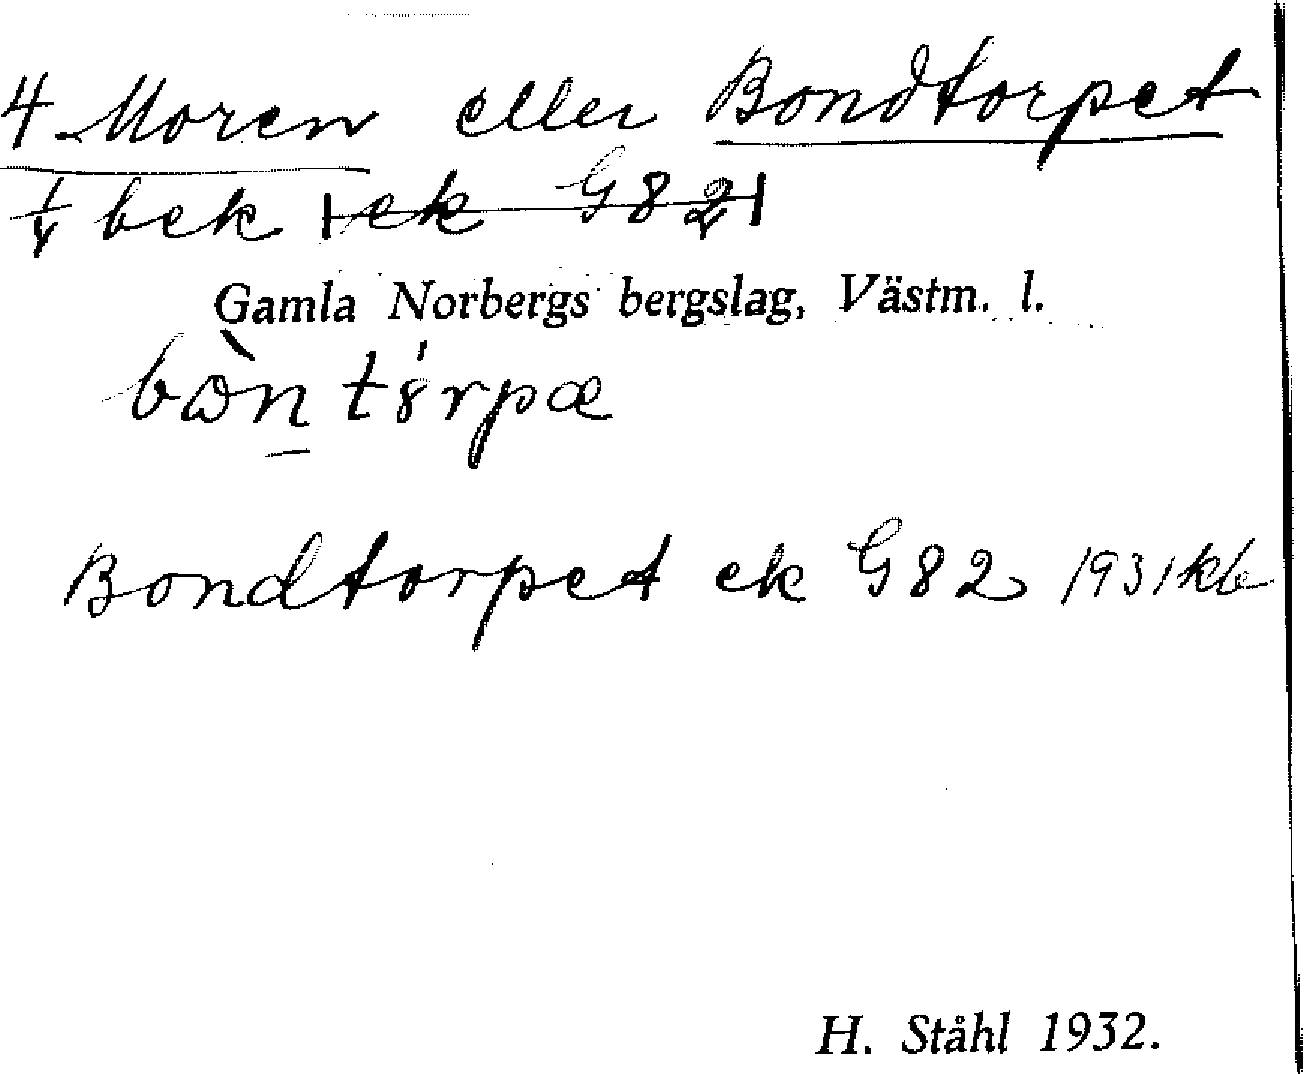 4 Moren eller Bondtorpet
¼ bek ek G82
Gamla Norbergs bergslag, Västm. l.
Bondtorpet ek G82 1931 kb
H. Ståhl 1932.